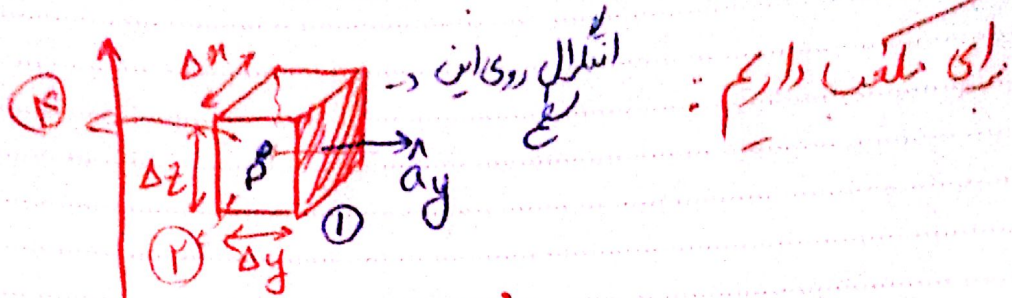 برای مکعب داریم :
انتگرال روی این
سطح
Δx
Δz
Δy
ây
①
②